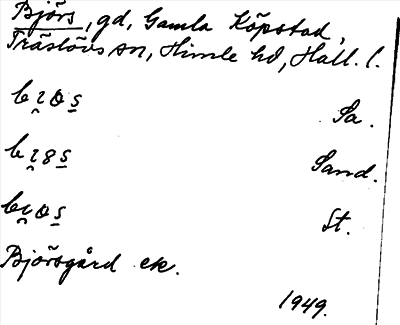 Björs, gd, Gamla Köpstad,
Träslövs sn, Himle hd, Hall. l.
Sa.
Sand.
St.
Björsgård ek.
1949.